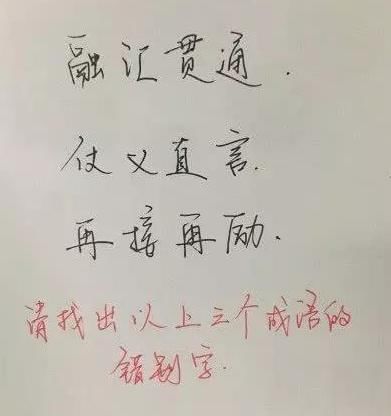 融汇贯通.
仗义直言.
再接再励.
请找出以上三个成语的
错别字.